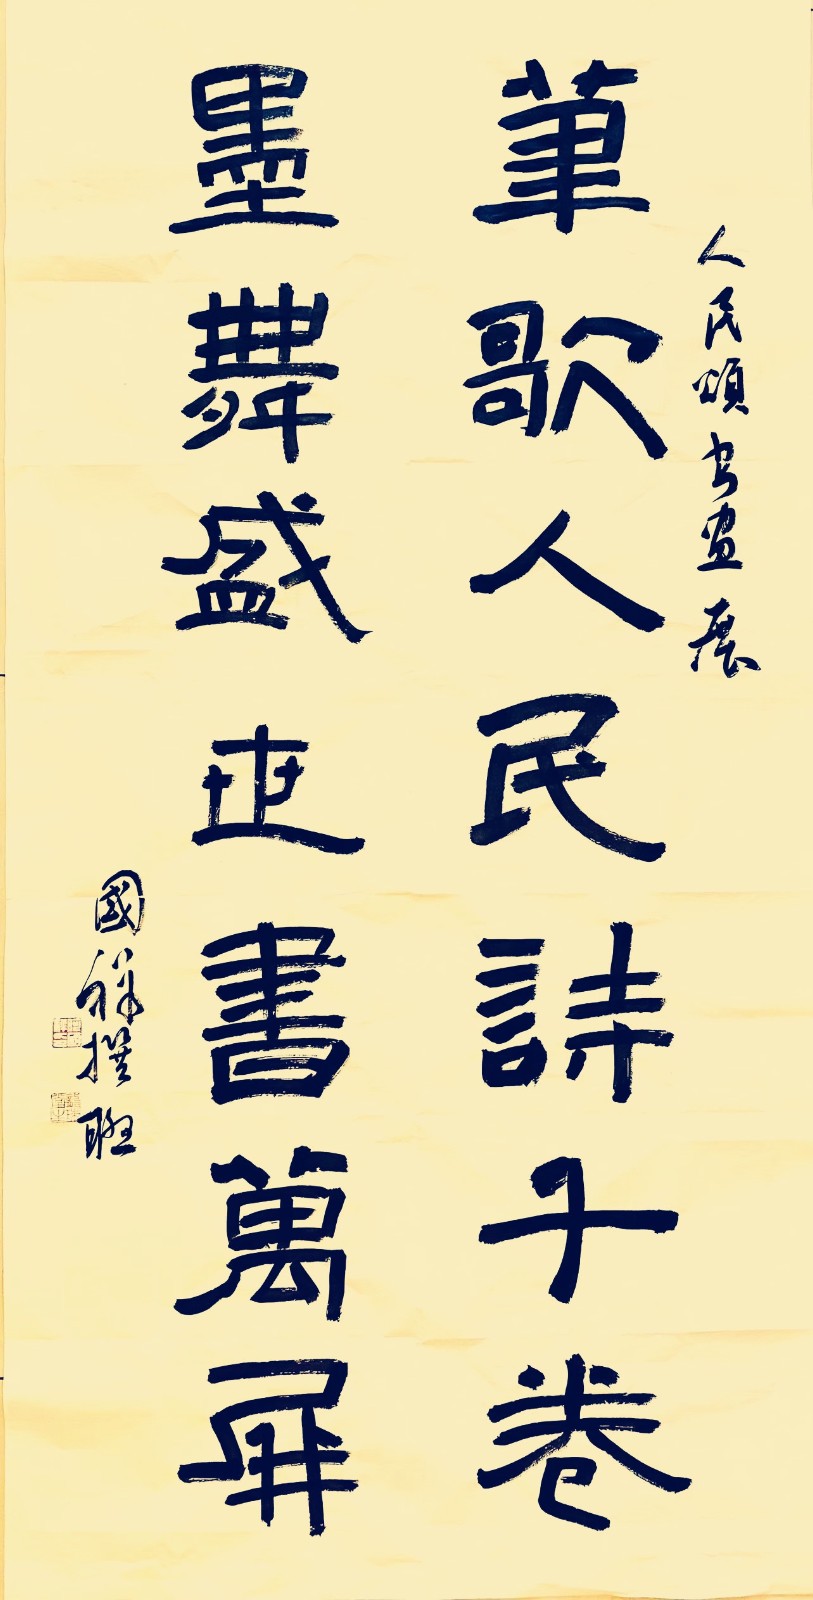 人民頌书畫展
筆歌人民詩千卷
墨舞盛世書萬屏
國祥撰聯